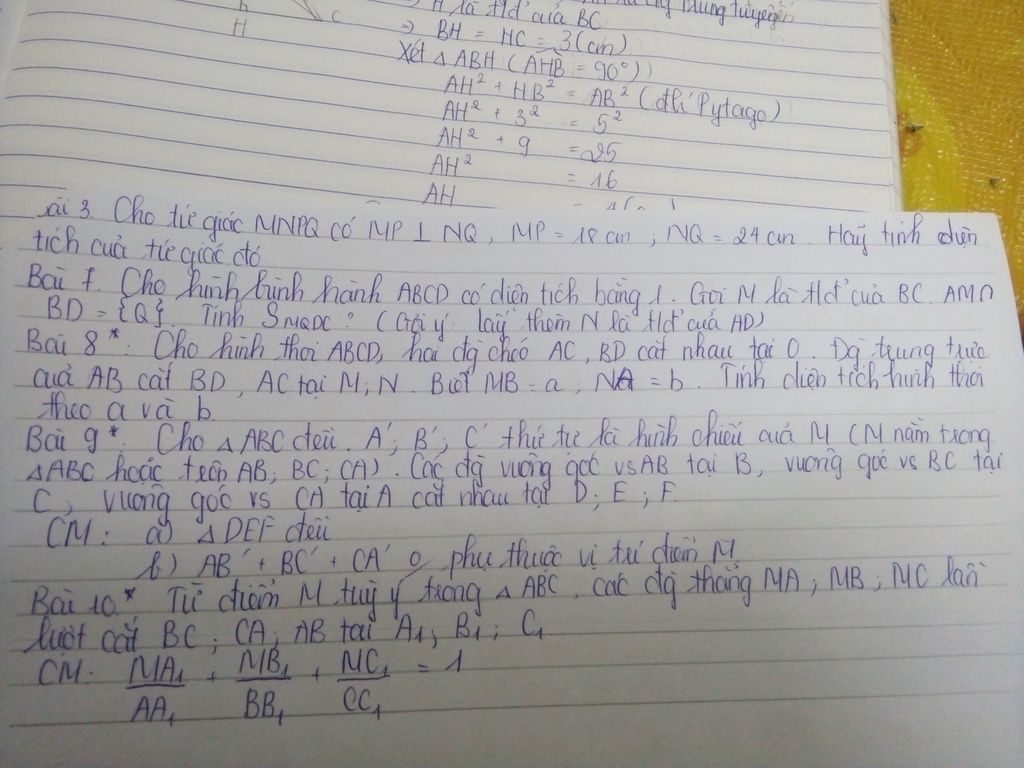 H C
H là tđ' của BC
⇒ BH = HC = 3 (cm)
Xét △ABH (AHB = 90°)
AH² + HB² = AB² (đlí Pytago)
AH² + 3² = 5²
AH² + 9 = 25
AH² = 16
AH
ài 3. Cho tứ giác MNPQ có MP ⊥ NQ, MP = 18 cm ; NQ = 24 cm. Hãy tính diện
tích của tứ giác đó.
Bài 7. Cho hình bình hành ABCD có diện tích bằng 1. Gọi M là tđ' của BC. AM∩
BD = {Q}. Tính SMQDC ? (Gợi ý: lấy thêm N là tđ' của AD)
Bài 8*. Cho hình thoi ABCD, hai đg chéo AC, BD cắt nhau tại O. Đg trung trực
của AB cắt BD, AC tại M, N. Biết MB = a, NA = b. Tính diện tích hình thoi
theo a và b.
Bài 9*. Cho △ABC đều. A', B', C' thứ tự là hình chiếu của M (M nằm trong
△ABC hoặc trên AB; BC; CA). Các đg vuông góc vs AB tại B, vuông góc vs BC tại
C, vuông góc vs CA tại A cắt nhau tại D; E; F.
CM: a) △DEF đều
b) AB' + BC' + CA' o phụ thuộc vị trí điểm M.
Bài 10.* Từ điểm M tuỳ ý trong △ABC, các đg thẳng MA, MB, MC lần
lượt cắt BC; CA, AB tại A₁, B₁, C₁.
CM. MA₁/AA₁ + MB₁/BB₁ + MC₁/CC₁ = 1